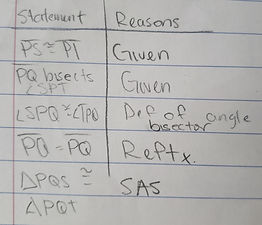 Statement Reasons
PS ≅ PT Given
PQ bisects Given
∠SPT
∠SPQ ≅ ∠TPQ Def of angle
bisector
PQ = PQ Reflx.
△PQS ≅ SAS
△PQT